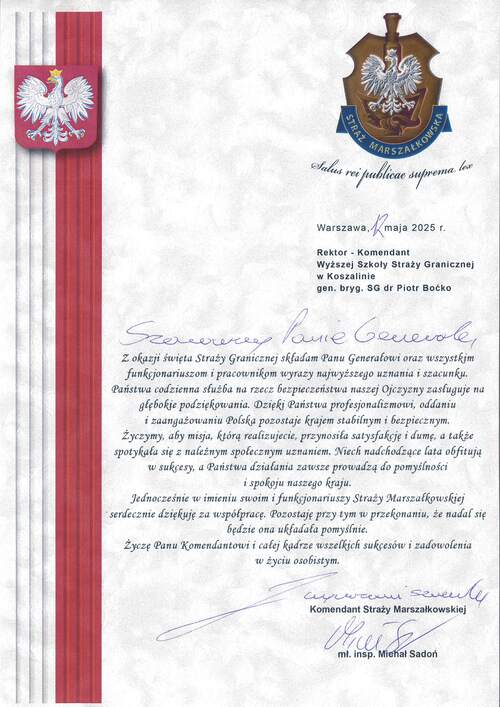 STRAŻ MARSZAŁKOWSKA
Salus rei publicae suprema lex
Warszawa, 12 maja 2025 r.
Rektor - Komendant
Wyższej Szkoły Straży Granicznej
w Koszalinie
gen. bryg. SG dr Piotr Boćko
Szanowny Panie Generale,
Z okazji święta Straży Granicznej składam Panu Generałowi oraz wszystkim
funkcjonariuszom i pracownikom wyrazy najwyższego uznania i szacunku.
Państwa codzienna służba na rzecz bezpieczeństwa naszej Ojczyzny zasługuje na
głębokie podziękowania. Dzięki Państwa profesjonalizmowi, oddaniu
i zaangażowaniu Polska pozostaje krajem stabilnym i bezpiecznym.
Życzymy, aby misja, którą realizujecie, przynosiła satysfakcję i dumę, a także
spotykała się z należnym społecznym uznaniem. Niech nadchodzące lata obfitują
w sukcesy, a Państwa działania zawsze prowadzą do pomyślności
i spokoju naszego kraju.
Jednocześnie w imieniu swoim i funkcjonariuszy Straży Marszałkowskiej
serdecznie dziękuję za współpracę. Pozostaję przy tym w przekonaniu, że nadal się
będzie ona układała pomyślnie.
Życzę Panu Komendantowi i całej kadrze wszelkich sukcesów i zadowolenia
w życiu osobistym.
Komendant Straży Marszałkowskiej
mł. insp. Michał Sadoń